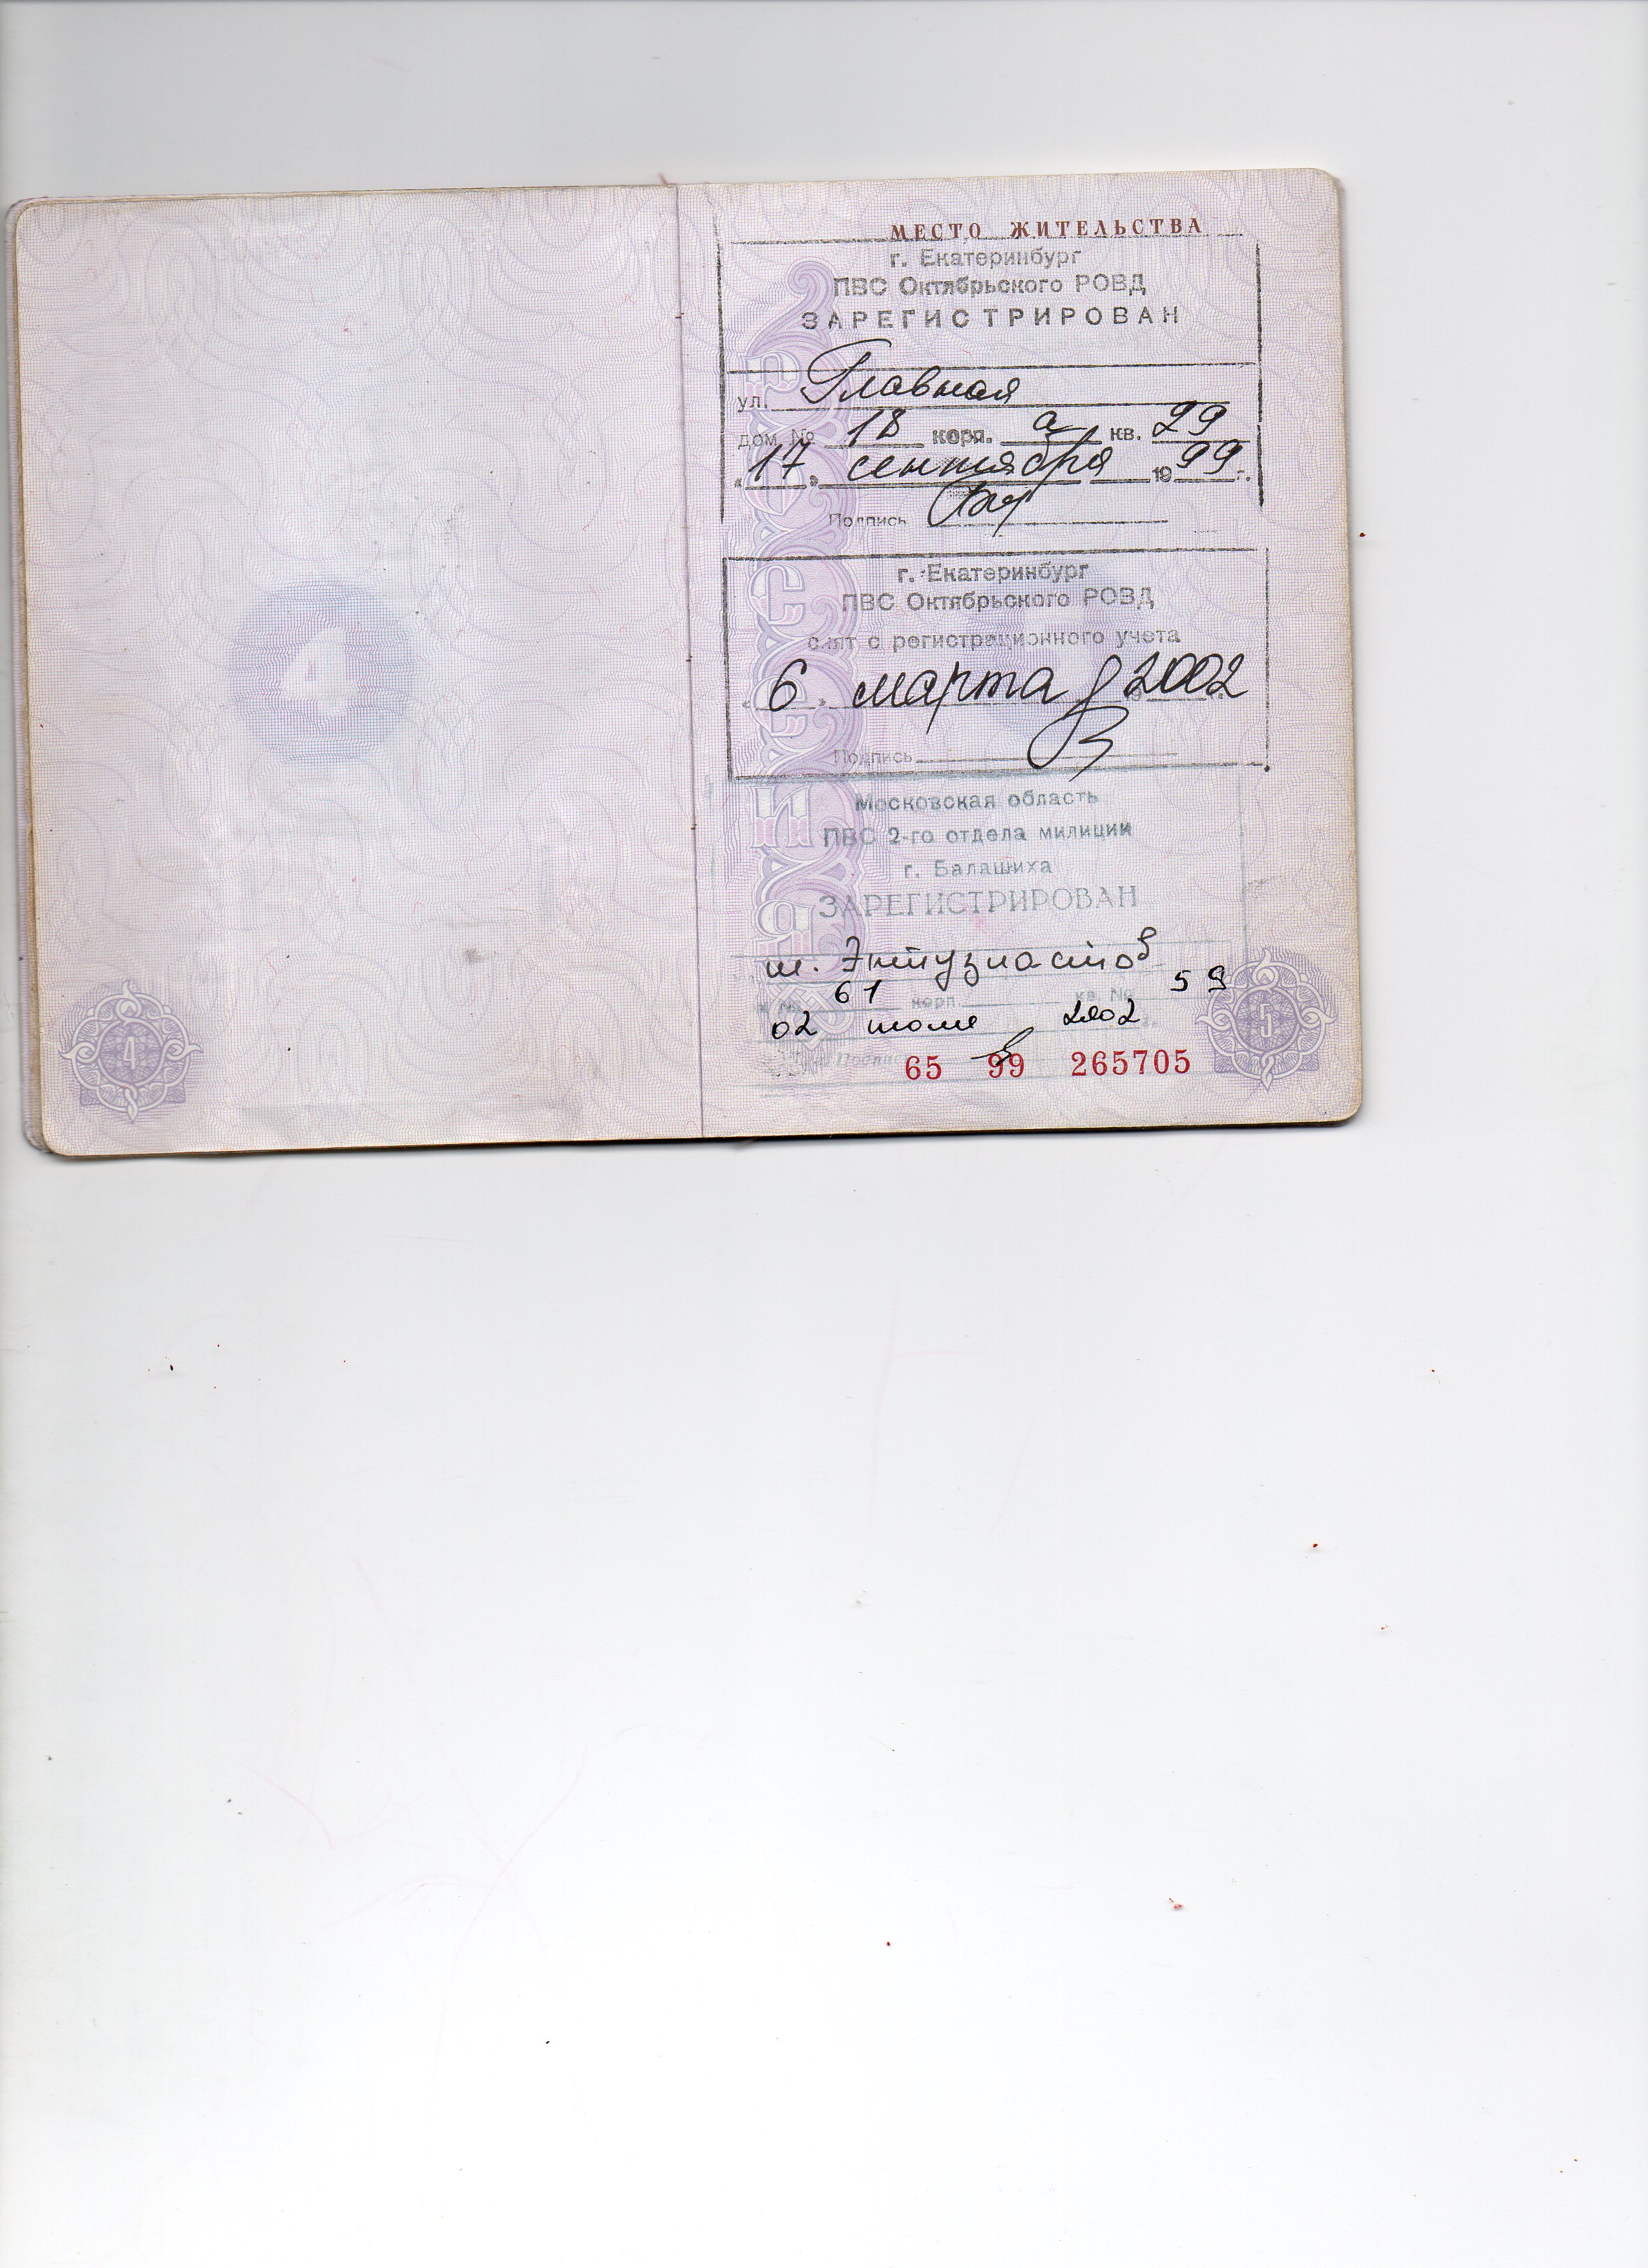 МЕСТО ЖИТЕЛЬСТВА
г. Екатеринбург
ПВС Октябрьского РОВД
ЗАРЕГИСТРИРОВАН
ул. Главная
дом № 18 корп. а кв. 29
«17» сентября 1999 г.
Подпись
г. Екатеринбург
ПВС Октябрьского РОВД
снят с регистрационного учета
«6» марта 2002
Подпись
Московская область
ПВС 2-го отдела милиции
г. Балашиха
ЗАРЕГИСТРИРОВАН
ш. Энтузиастов
61 корп. кв. № 59
02 июля 2002
Подпись
65 99 265705
4
4
5
РОССИЯ